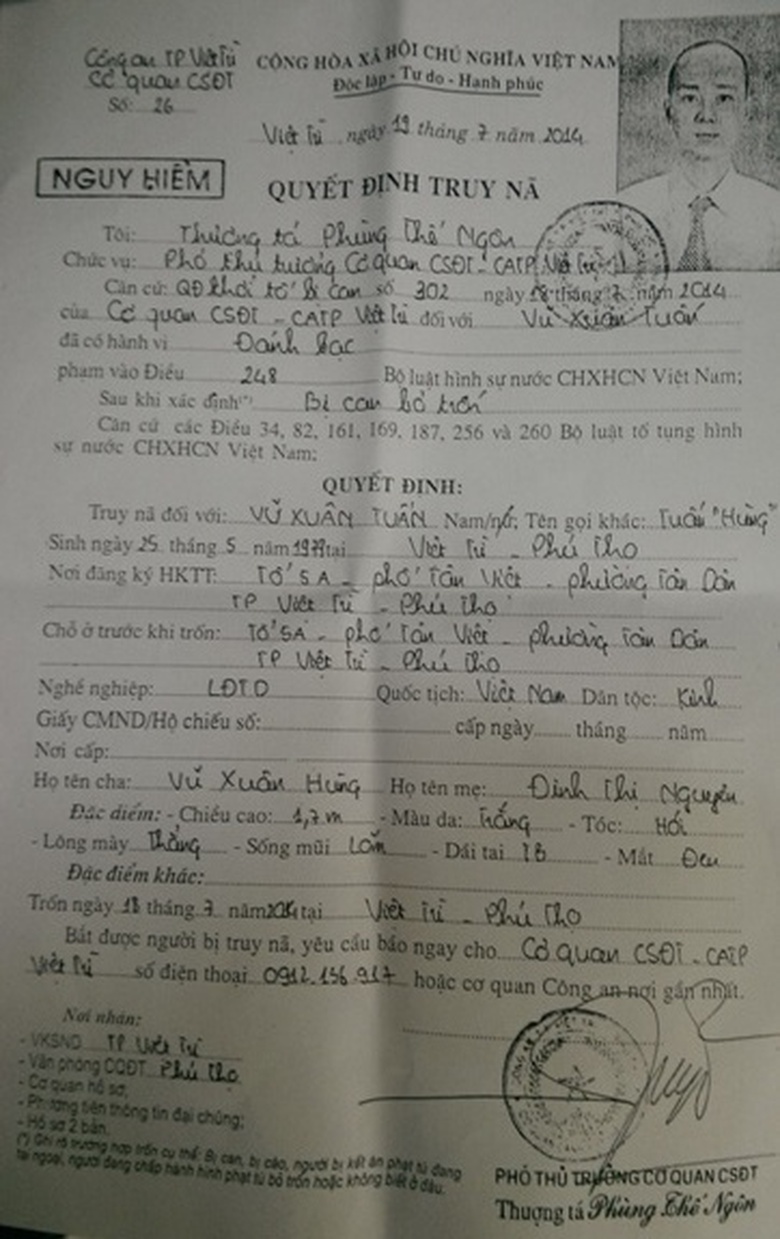 Công an TP Việt Trì
Cơ quan CSĐT
Số: 26
CỘNG HÒA XÃ HỘI CHỦ NGHĨA VIỆT NAM
Độc lập - Tự do - Hạnh phúc
Việt Trì ngày 19 tháng 7 năm 2014
NGUY HIỂM
QUYẾT ĐỊNH TRUY NÃ
Tôi: Thượng tá Phùng Thế Ngôn
Chức vụ: Phó thủ trưởng Cơ quan CSĐT - CATP Việt Trì
Căn cứ: QĐ khởi tố bị can số 302 ngày 18 tháng 7 năm 2014
của Cơ quan CSĐT - CATP Việt Trì đối với Vũ Xuân Tuấn
đã có hành vi Đánh bạc
phạm vào Điều 248 Bộ luật hình sự nước CHXHCN Việt Nam;
Sau khi xác định(*) Bị can bỏ trốn
Căn cứ các Điều 34, 82, 161, 169, 187, 256 và 260 Bộ luật tố tụng hình
sự nước CHXHCN Việt Nam;
QUYẾT ĐỊNH:
Truy nã đối với: VŨ XUÂN TUẤN Nam/nữ; Tên gọi khác: Tuấn "Hùng"
Sinh ngày 25 tháng 5 năm 1979 tại Việt Trì - Phú Thọ
Nơi đăng ký HKTT: Tổ 5A - phố Tân Việt - phường Tân Dân
TP Việt Trì - Phú Thọ
Chỗ ở trước khi trốn: Tổ 5A - phố Tân Việt - phường Tân Dân
TP Việt Trì - Phú Thọ
Nghề nghiệp: LĐTD Quốc tịch: Việt Nam Dân tộc: Kinh
Giấy CMND/Hộ chiếu số: cấp ngày tháng năm
Nơi cấp:
Họ tên cha: Vũ Xuân Hùng Họ tên mẹ: Đinh Thị Nguyên
Đặc điểm: - Chiều cao: 1,7 m - Màu da: Trắng - Tóc: Hói
- Lông mày Thẳng - Sống mũi Lõm - Dái tai TB - Mắt Đen
Đặc điểm khác:
Trốn ngày 18 tháng 7 năm 2014 tại Việt Trì - Phú Thọ
Bắt được người bị truy nã, yêu cầu báo ngay cho Cơ quan CSĐT - CATP
Việt Trì số điện thoại 0912.156.917 hoặc cơ quan Công an nơi gần nhất.
Nơi nhận:
- VKSND TP Việt Trì
- Văn phòng CQĐT Phú Thọ
- Cơ quan hồ sơ;
- Phương tiện thông tin đại chúng;
- Hồ sơ 2 bản.
(*) Ghi rõ trường hợp trốn cụ thể: Bị can, bị cáo, người bị kết án phạt tù đang
tại ngoại, người đang chấp hành hình phạt tù bỏ trốn hoặc không biết ở đâu.
PHÓ THỦ TRƯỞNG CƠ QUAN CSĐT
Thượng tá Phùng Thế Ngôn